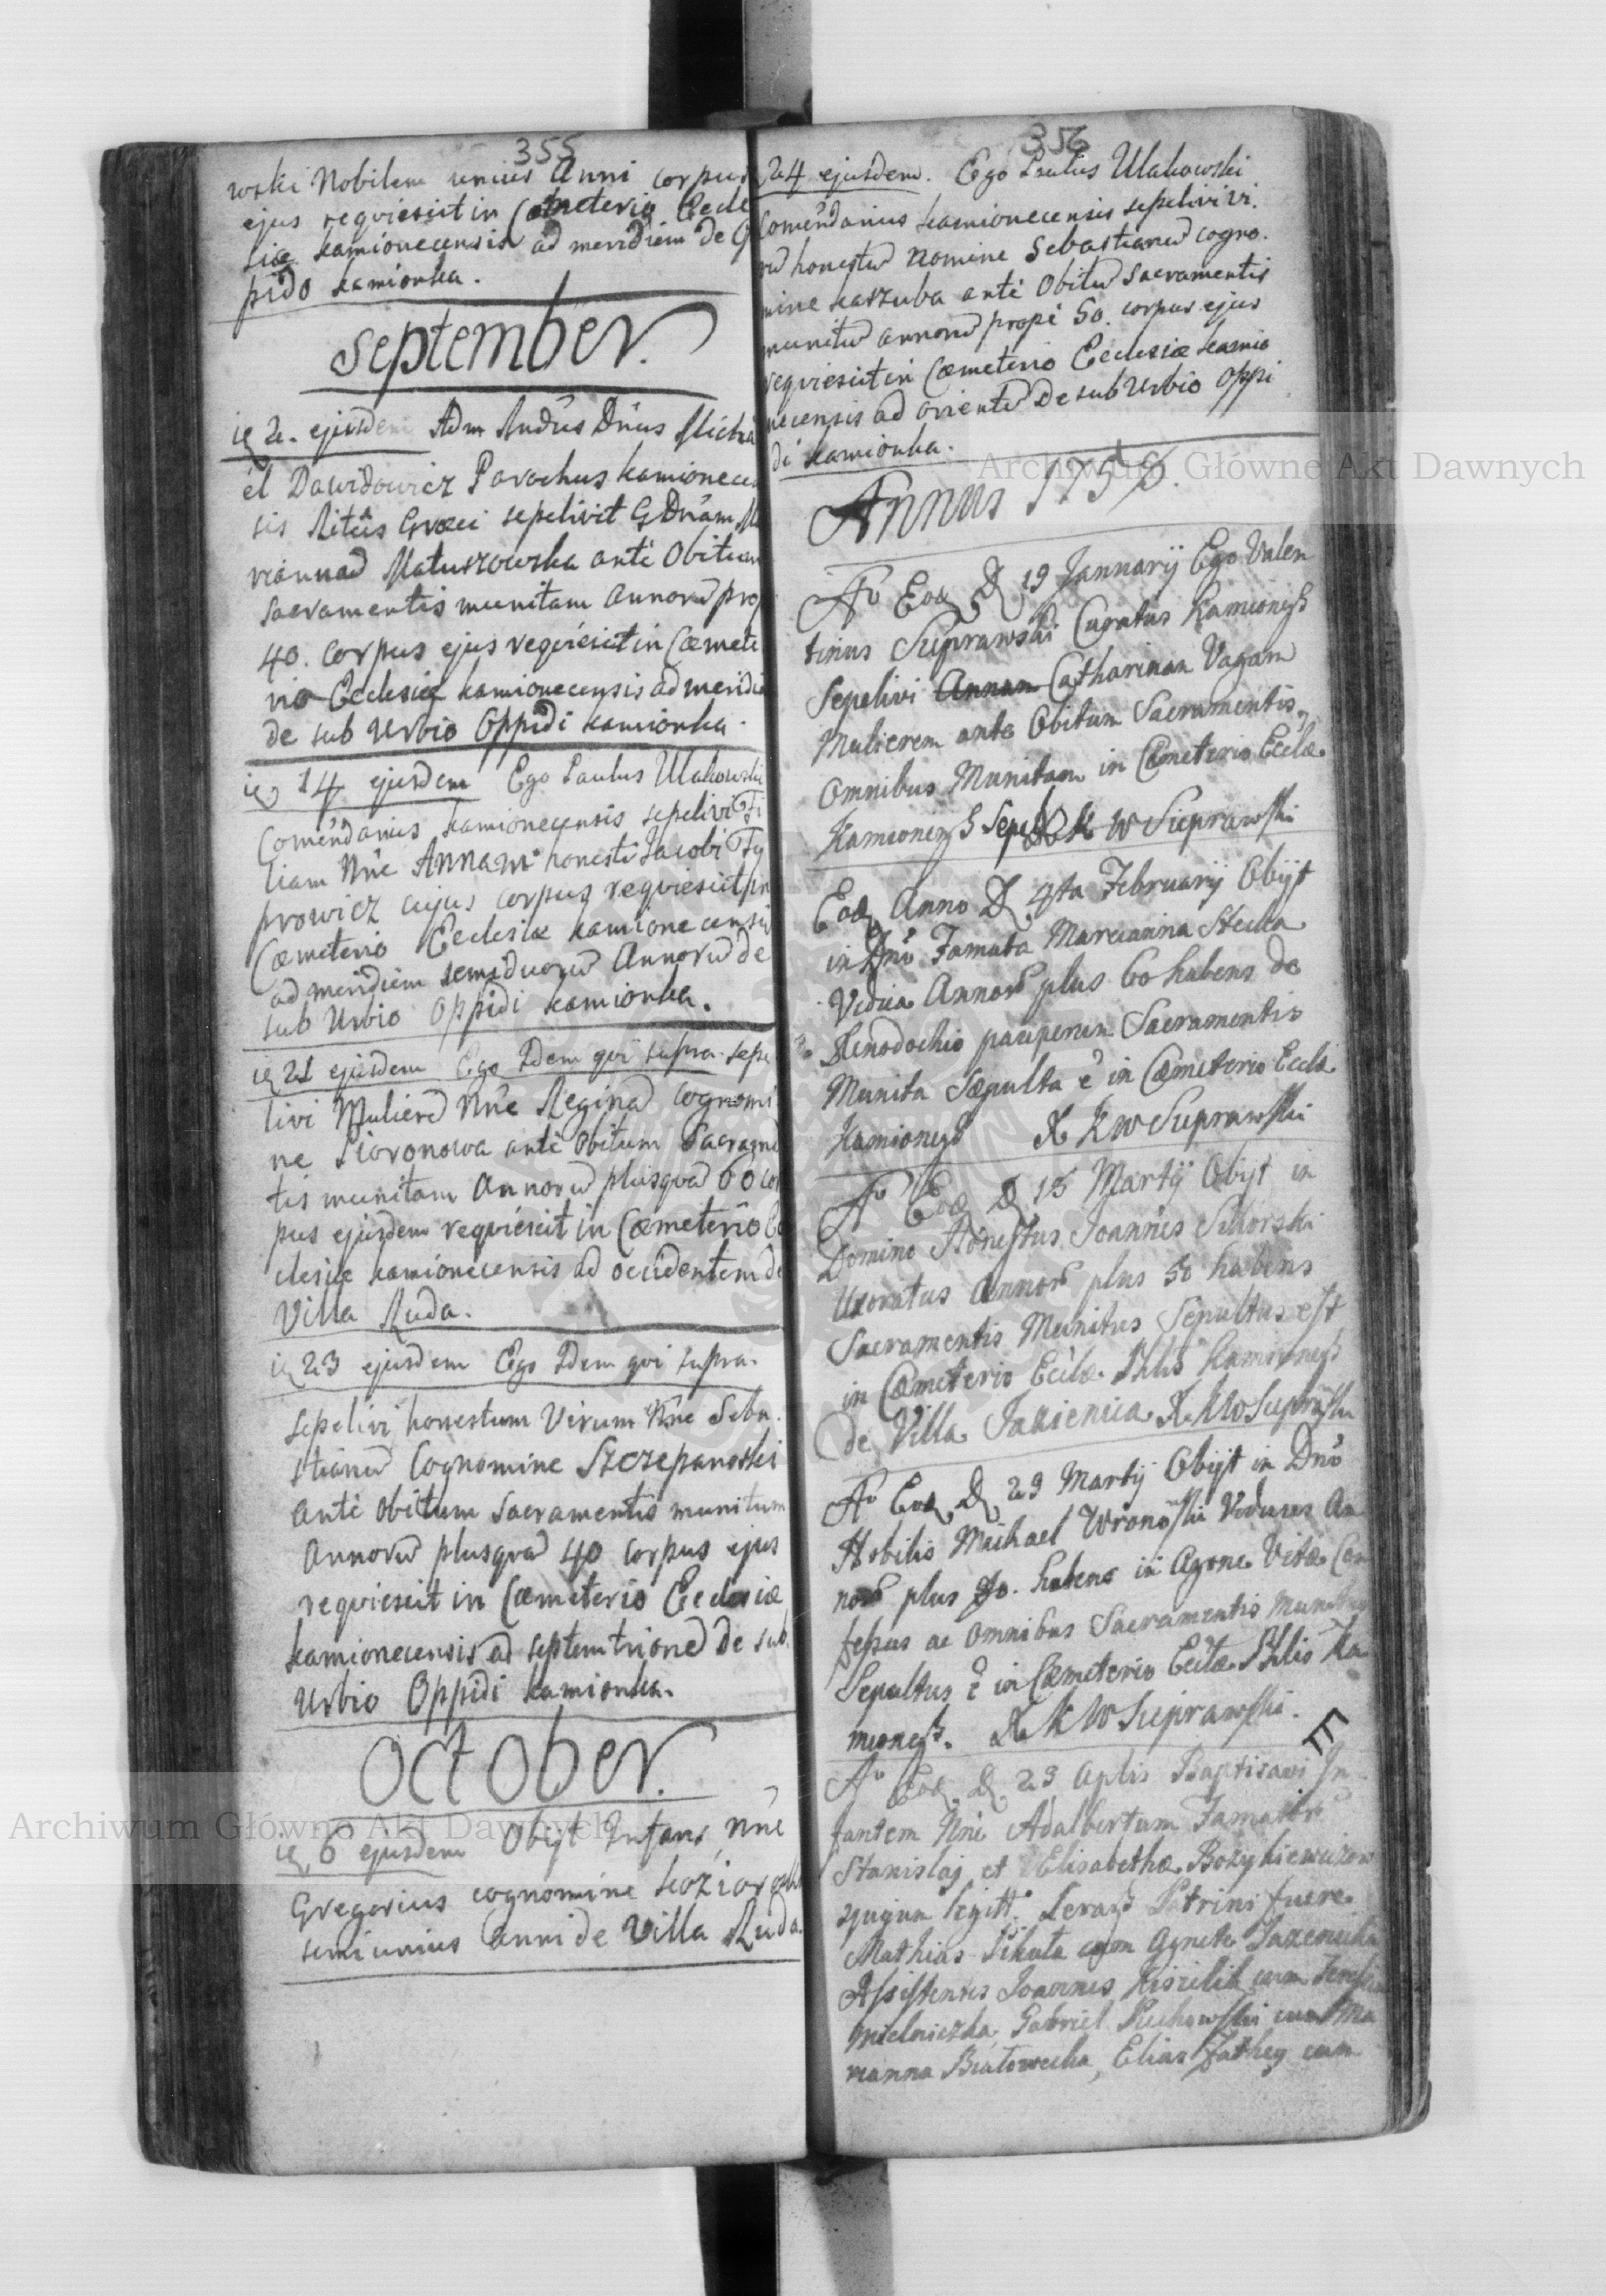 355
wski Nobilem unius Anni corpus
ejus reqviescit in Cemeterio Eccle
siæ kamionecensis ad meridiem de
pido kamionka.
September.
2. ejusdem Adm Rndus Dnus Micha
el Dawidowicz Parochus kamionecen
sis Ritûs Græci sepelivit GDnam Ma
riannad Matuszowska ante Obitum
sacramentis munitam annorū prop
40. corpus ejus reqviescit in Cæmete
rio Ecclesiæ kamionecensis ad meridie
de sub Urbio Oppidi kamionka.
14 ejusdem Ego Paulus Ulakowski
Comendarius kamionecensis sepelivi Fi
liam Nne Annam honesti Jacobi Fy
prowicz cujus corpus reqviescit in
Cæmeterio Ecclesiæ kamionecensis
ad meridiem semiduorū Annorū de
sub Urbio Oppidi kamionka.
21 ejusdem Ego Idem qvi supra sepe
livi Mulierē Nne Reginā cognomi
ne Pioronowa ante Obitum Sacrame
tis munitam Annorū plusqvā 60 cor
pus ejusdem reqviescit in Cæmeterio Ec
clesiæ kamionecensis ad occidentem de
Villa Ruda.
23 ejusdem Ego Idem qvi supra.
sepelivi honestum Virum Nne Seba.
stianū Cognomine Szczepanoski
Ante Obitum Sacramentis munitum
Annorū plusqvā 40 corpus ejus
reqviescit in Cæmeterio Ecclesiæ
kamionecensis ad septemtrionē de sub
Urbio Oppidi kamionka.
October.
6 ejusdem Obijt Infans, nne
Gregorius cognomine
semiunius Anni de Villa Ruda.
356
24 ejusdem. Ego Paulus Ulakowski
Comendarius kamionecensis sepelivi vi.
rū honestū Nomine Sebastianū cogno.
mine kaszuba ante Obitū Sacramentis
munitū annorū prope 50. corpus ejus
reqviescit in Cæmeterio Ecclesiæ kamio
necensis ad orientē de sub Urbio Oppi
di kamionka.
Annus 1756.
Ao Eod D 19 Januarij Ego Valen
tinus Sieprawski Curatus Kamioneß
Sepelivi Annam Catharinam Vagam
Mulierem ante Obitum Sacramentis
Omnibus Munitam in Cæmeterio Ecclæ
W Sieprawski
Eod Anno D 4ta Februarij Obijt
in Dno Famata Marianna Stecka
Vidua Annor plus 60 habens de
Xenodochio pauperum Sacramentis
Munita Sæpulta ē in Cæmeterio Ecclæ
Kamioneß X K W Sieprawski
Ao Eod D 15 Martij Obijt in
Domino Honestus Joannes Sikorski
Uxoratus Annor plus 50 habens
Sacramentis Munitus Sepultus est
in Cæmeterio Ecclæ Kamioneß
de Villa Jazienica X K W Sieprawski
Ao Eod D 29 Martij Obijt in Dno
Nobilis Michael Wronoski Viduus An
nor plus habens in Agone Vitæ Con
fessus ac Omnibus Sacramentis Munitus
Sepultus ē in Cæmeterio Ecclæ Ka
mioneß. X K W Sieprawski.
Ao Eod D 23 Aplis Baptisavi In
fantem Nne Adalbertum Famator
Stanislaj et Elisabethæ
jugum legitt: Levanß Patrini fuere
Mathias Pikuta cum Agnete Jazenicka
Assistentes Joannes Kisielik cum
Mielniczka, Gabriel cum Ma
rianna Białowecka, Elias Fathey cum
Archiwum Główne Akt Dawnych
Archiwum Główne Akt Dawnych